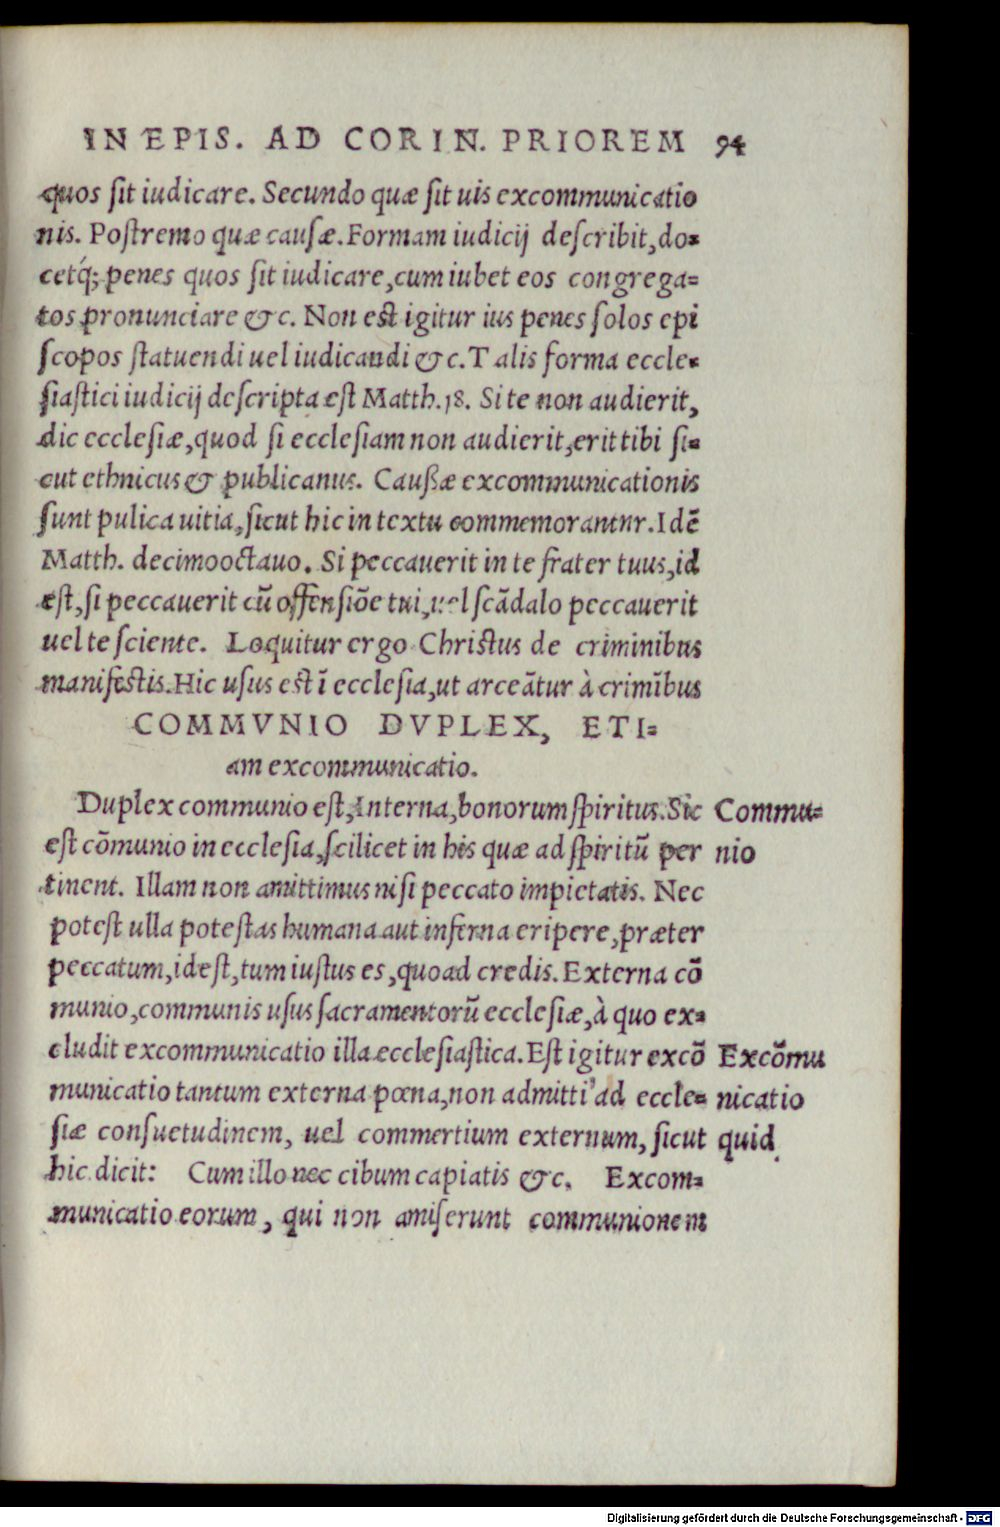 IN EPIS. AD CORIN. PRIOREM 94
quos ſit iudicare. Secundo quæ ſit uis excommunicatio
nis. Poſtremo quæ cauſæ. Formam iudicij deſcribit, do=
cetq́; penes quos ſit iudicare, cum iubet eos congrega=
tos pronunciare &c. Non eſt igitur ius penes ſolos epi
ſcopos ſtatuendi uel iudicandi &c. Talis forma eccle=
ſiaſtici iudicij deſcripta eſt Matth. 18. Si te non audierit,
dic eccleſiæ, quod ſi eccleſiam non audierit, erit tibi ſi=
cut ethnicus & publicanus. Caußæ excommunicationis
ſunt pulica uitia, ſicut hic in textu commemorantnr. Idē
Matth. decimooctauo. Si peccauerit in te frater tuus, id
eſt, ſi peccauerit cū offenſiōe tui, uel ſcādalo peccauerit
uel te ſciente. Loquitur ergo Chriſtus de criminibus
manifeſtis. Hic uſus eſt ī eccleſia, ut arceātur à crimībus
COMMVNIO DVPLEX, ETI=
am excommunicatio.
Duplex communio eſt, Interna, bonorum ſpiritus. Sic
Commu=
eſt cōmunio in eccleſia, ſcilicet in his quæ ad ſpiritū per
nio
tinent. Illam non amittimus niſi peccato impietatis. Nec
poteſt ulla poteſtas humana aut inferna eripere, præter
peccatum, id eſt, tum iuſtus es, quoad credis. Externa cō
munio, communis uſus ſacramentorū eccleſiæ, à quo ex=
cludit excommunicatio illa eccleſiaſtica. Eſt igitur excō
Excōmu
municatio tantum externa pœna, non admitti ad eccle=
nicatio
ſiæ conſuetudinem, uel commertium externum, ſicut
quid
hic dicit: Cum illo nec cibum capiatis &c. Excom=
municatio eorum, qui non amiſerunt communionem
Digitalisierung gefördert durch die Deutsche Forschungsgemeinschaft - DFG